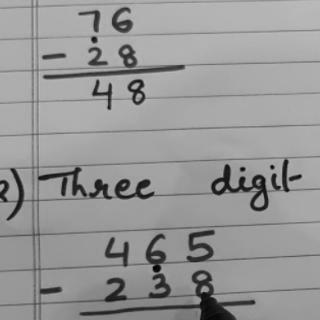 76
- 28
48
2) Three digit
465
- 238